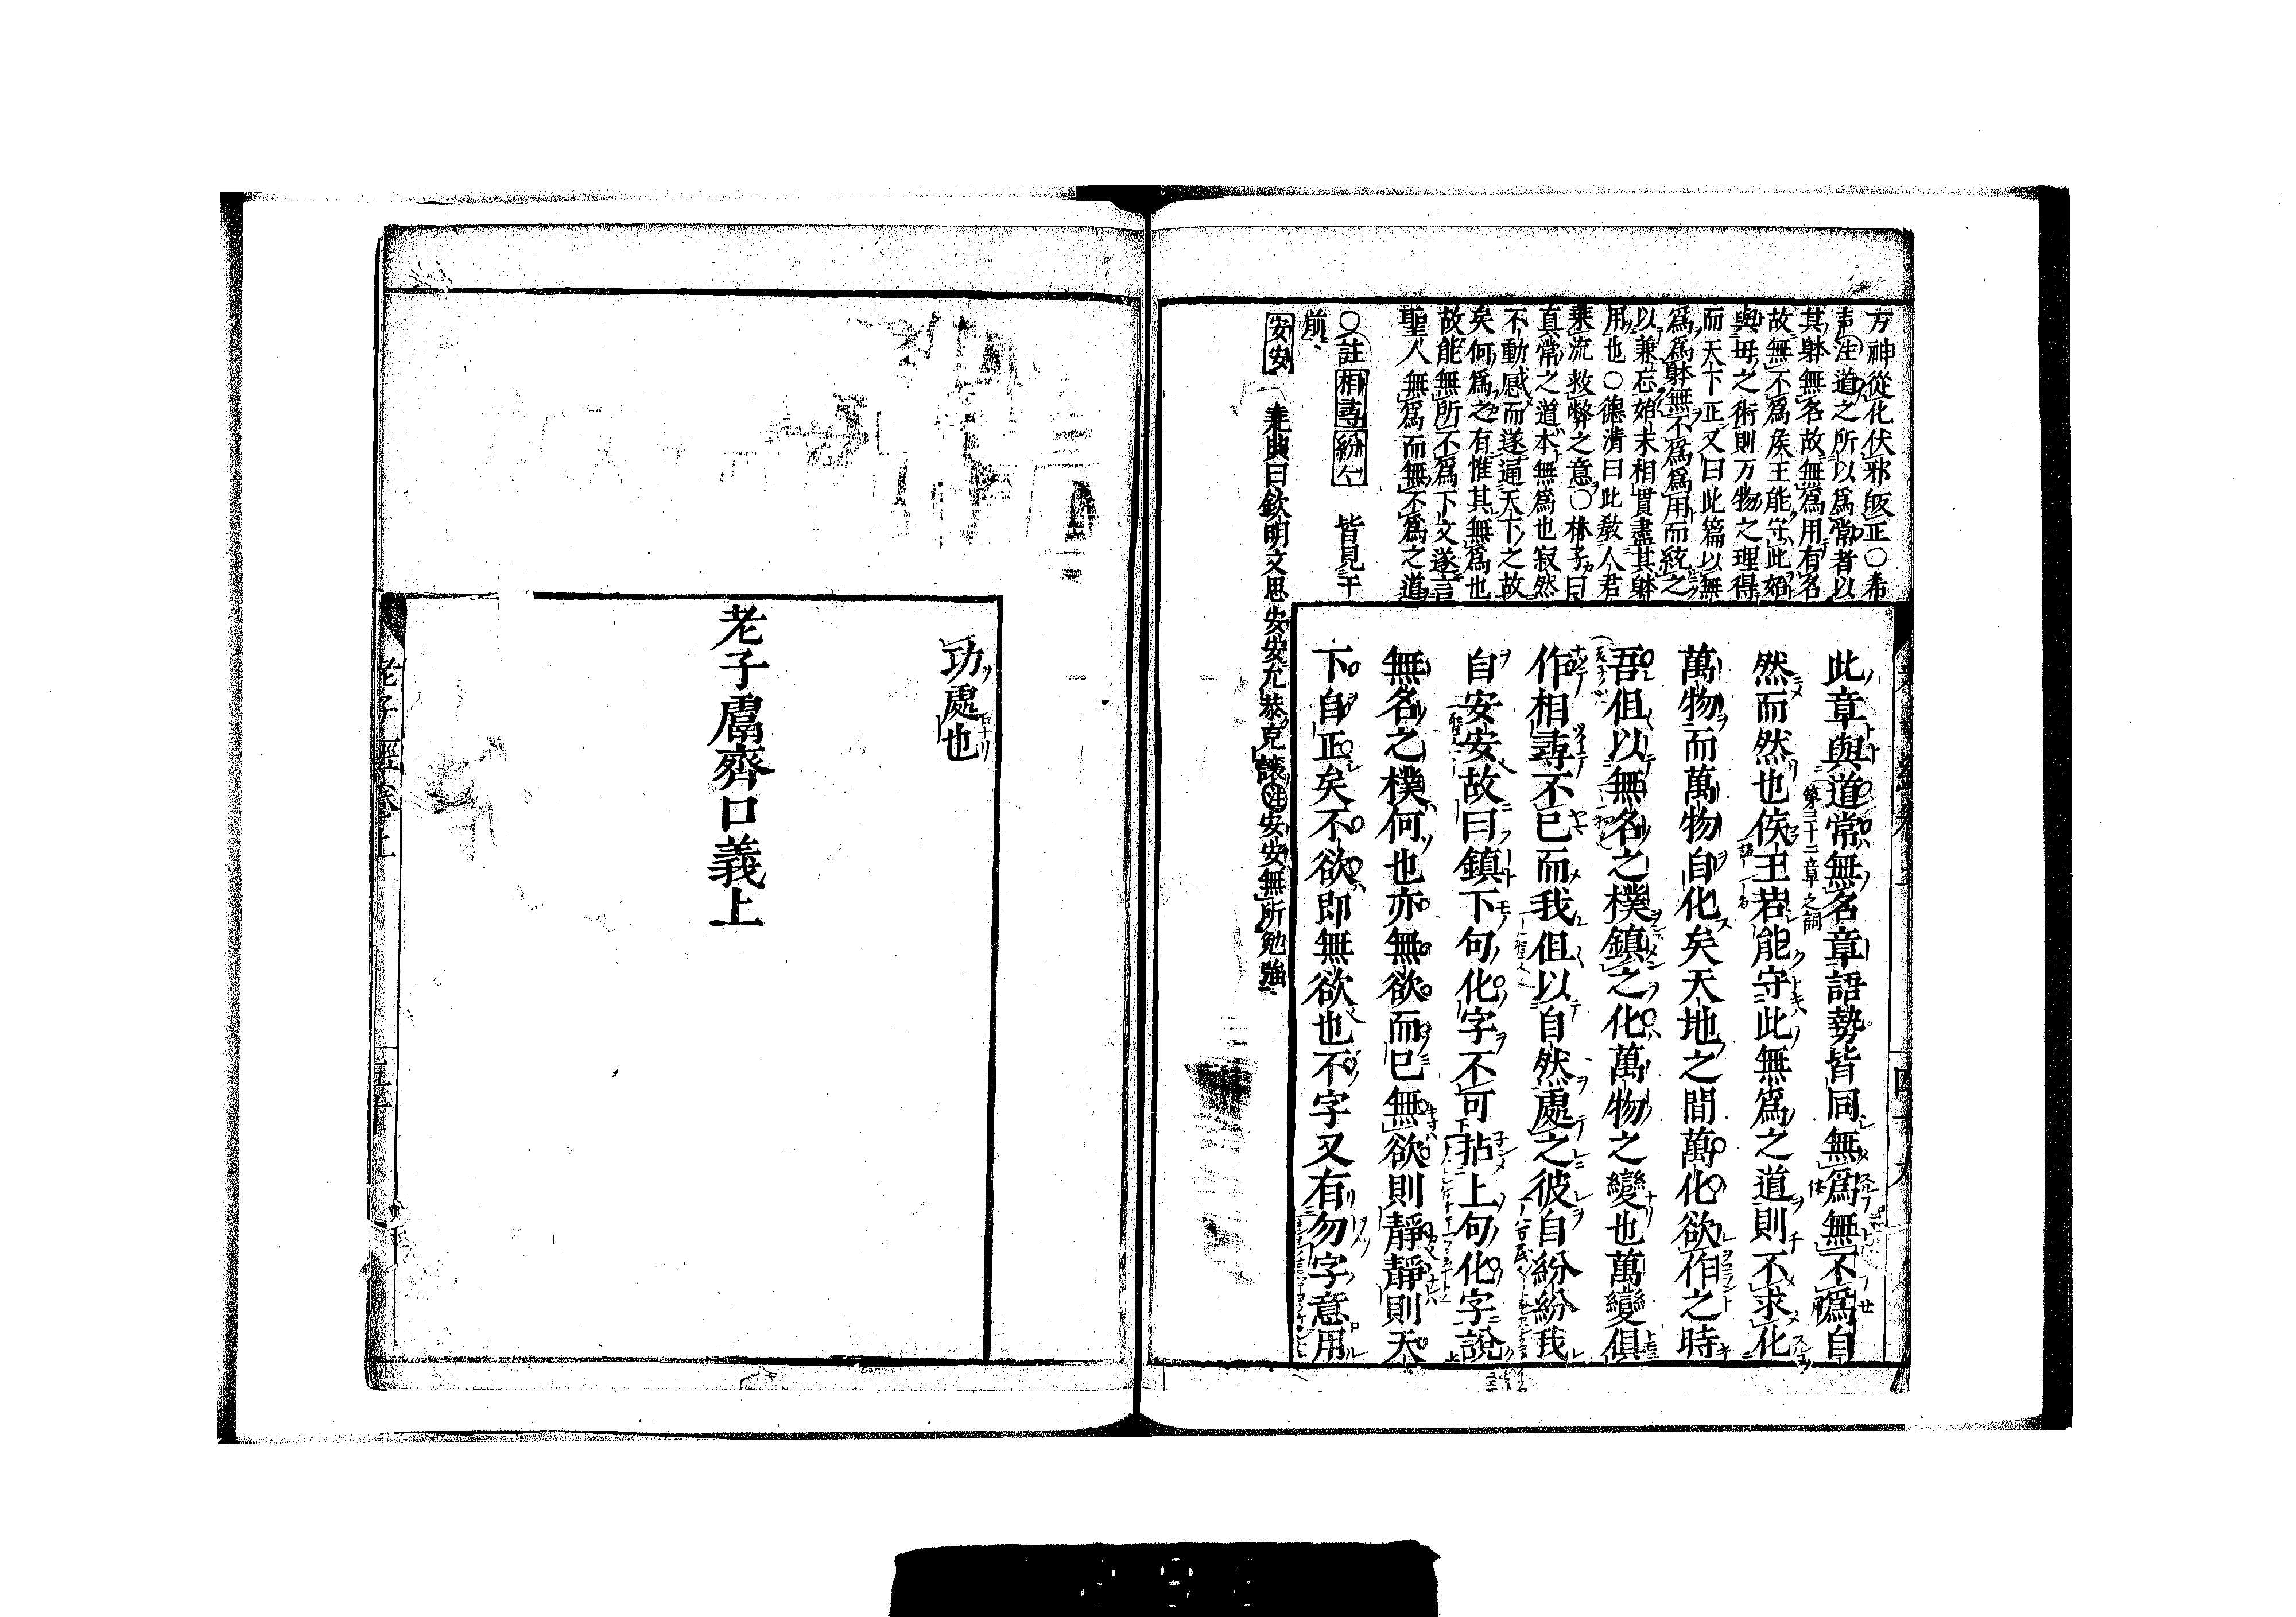 万神從化伏邪皈正○希
声注道之所以爲常者以
其躰無名故無爲用有名
故無不爲矦王能守此始
與毋之術則万物之理得
而天下正又曰此篇以無
爲爲躰無不爲爲用而統之
以兼忘始末相貫盡其躰
用也○德淸曰此敎人君
乘流救弊之意○林子曰
眞常之道本無爲也寂然
不動感而遂通天下之故
矣何爲之有惟其無爲也
故能無所不爲下文遂言
聖人無爲而無不爲之道
○註相尋紛〻 皆見于
前
安安 堯典曰欽明文思安安允恭克讓注安安無所勉強
此章與道常無名章語勢皆同無爲無不爲自
第三十二章之詞
然而然也侯王若能守此無爲之道則不求化
萬物而萬物自化矣天地之間萬化欲作之時
吾但以無名之樸鎮之化萬物之變也萬變俱
作相尋不已而我但以自然處之彼自紛紛我
自安安故曰鎮下句化字不可拈上句化字說
無名之樸何也亦無欲而已無欲則靜靜則天
下自正矣不欲即無欲也不字又有勿字意用
功處也
老子鬳齋口義上
老子經卷上